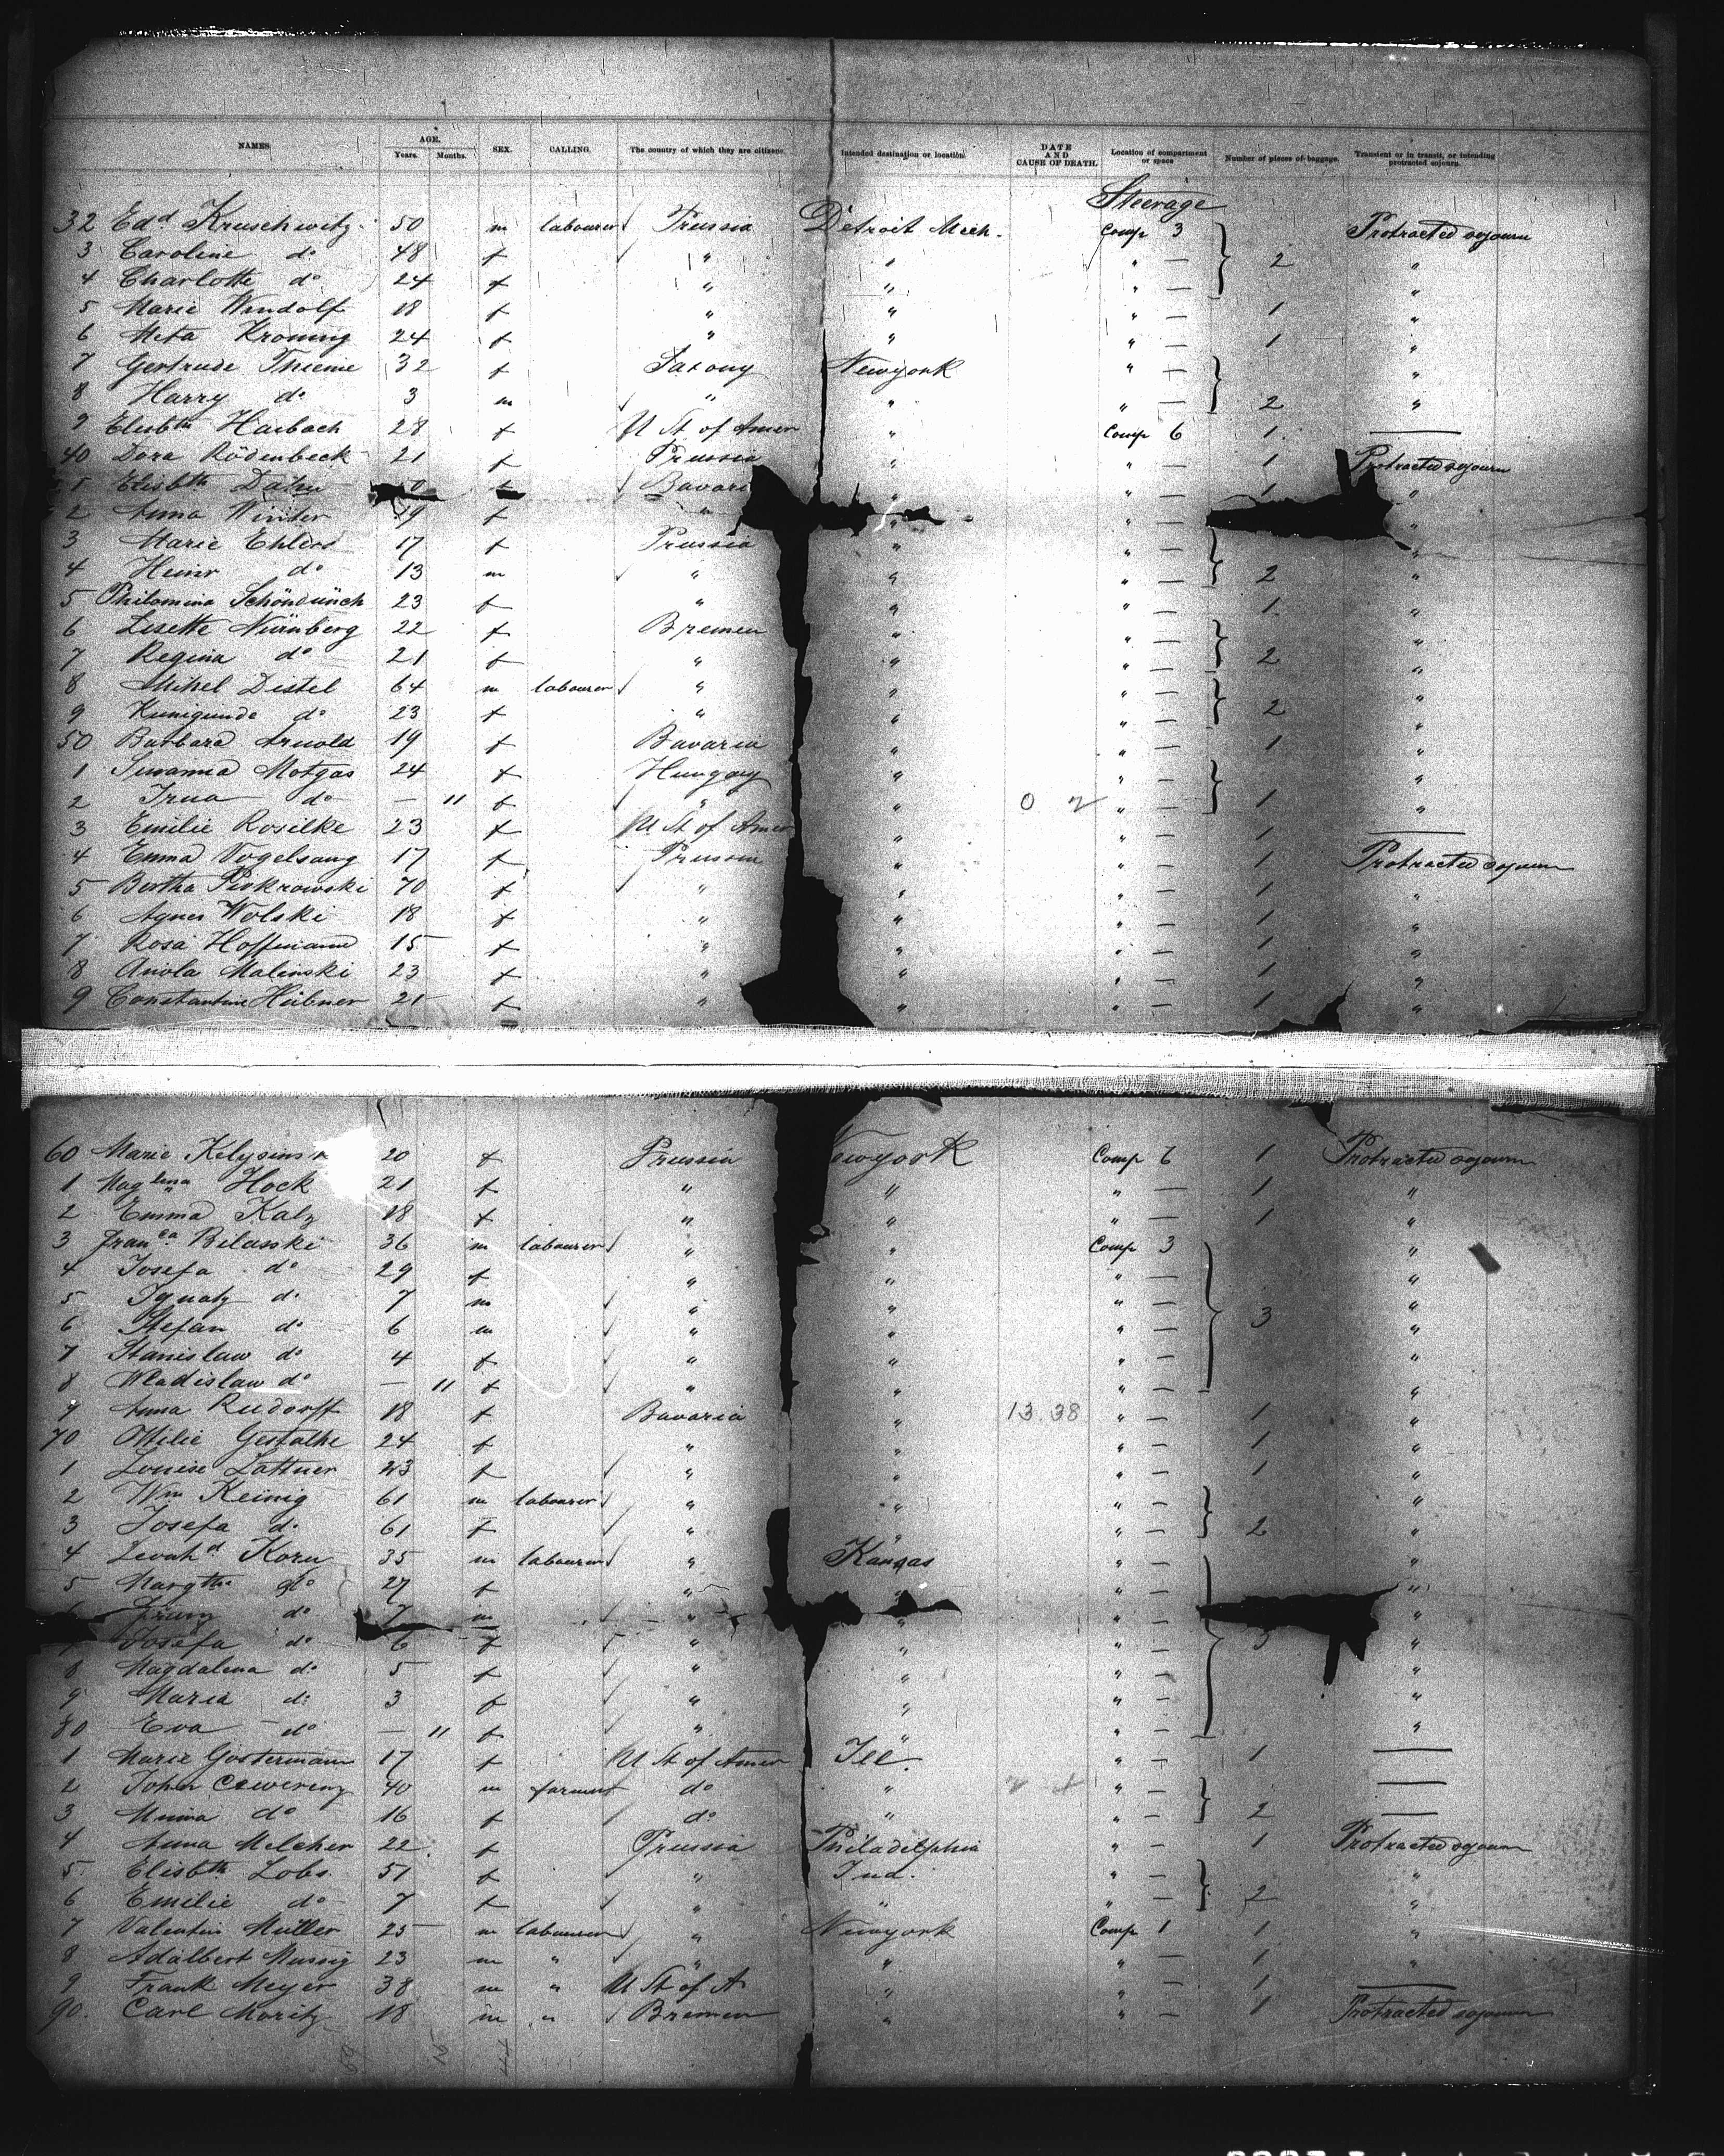 NAMES AGE. Years. Months. SEX. CALLING. The country of which they are citizens. Intended destination or location. DATE AND CAUSE OF DEATH. Location of compartment or space Number of pieces of baggage. Transient or in transit, or intending protracted sojourn.
Steerage
32 Edd. Kruschwitz 50 m labourer Prussia Detroit Mich. Comp 3 Protracted sojourn
3 Caroline do 48 f " " " — 2 "
4 Charlotte do 24 f " " " — "
5 Marie Windolf 18 f " " " — 1 "
6 Meta Kroning 24 f " " " — 1 "
7 Gertrude Thieme 32 f Saxony Newyork " — "
8 Harry do 3 m " " " — 2 "
9 Elisbth Harbach 28 f U St of Amer " Comp 6 1 —
40 Dora Rödenbeck 21 f Prussia " " — 1 Protracted sojourn
Elisbth f Bavari " " — 1 "
2 Anna Winter 19 f " " "
3 Marie Ehlers 17 f Prussia " " — "
4 Heinr do 13 m " " " — 2 "
5 Philomina 23 f " " " — 1 "
6 Lisette Nürnberg 22 f Bremen " " — "
7 Regina do 21 f " " " — 2 "
8 Michel Distel 64 m labourer " " " — "
9 Kunigunde do 23 f " " " — 2 "
50 Barbara Arnold 19 f Bavaria " " — 1 "
1 Susanna Motgas 24 f Hungary " " — "
2 Irna do — 11 f " " " — 1 "
3 Emilie Rosilke 23 f U St of Amer " " — 1 —
4 Emma Vogelsang 17 f Prussia " " — 1 Protracted sojourn
5 Bertha Piokrowski 70 f " " " — 1 "
6 Agnes Wolski 18 f " " " — 1 "
7 Rosa Hoffmann 15 f " " " — 1 "
8 Malinski 23 f " " " — 1 "
9 Constantine Hübner 21 f " " " — 1 "
60 Marie 20 f Prussia Newyork Comp 6 1 Protracted sojourn
1 Maglena Hock 21 f " " " — 1 "
2 Emma Katz 18 f " " " — 1 "
3 Franca. Bilasski 36 m labourer " " Comp 3 "
4 Josefa do 29 f " " " — "
5 Ignatz do 7 m " " " — "
6 Stefan do 6 m " " " — 3 "
7 Stanislaw do 4 f " " " — "
8 Wladislaw do — 11 f " " " — "
9 Anna Rudorff 18 f Bavaria " 13.38 " — 1 "
70 Ottilie 24 f " " " — 1 "
1 Louise Lattner 43 f " " " — 1 "
2 Wm Keinig 61 m labourer " " " — "
3 Josefa do 61 f " " " — 2 "
4 Korn 35 m labourer " Kansas " — "
5 Margthe do 27 f " " " — "
do 7 m " " " — "
Josefa do 6 f " " " — "
8 Magdalena do 5 f " " " — "
9 Maria do 3 f " " " — "
80 Eva do — 11 f " " " — "
1 Marie Gostermann 17 f U St of Amer Ill. " — 1 —
2 John 40 m farmer do " " — —
3 Minna do 16 f do " " — 2 —
4 Anna Melcher 22 f Prussia Philadelphia " — 1 Protracted sojourn
5 Elisbth Lobs 51 f " Ind. " — "
6 Emilie do 7 f " " " — 2 "
7 Valentin Müller 25 m labourer " Newyork Comp 1 1 "
8 Adalbert Mussig 23 m " " " " — 1 "
9 Frank Meyer 38 m " U St of A " " — 1 —
90. Carl Moritz 18 m " Bremen " " — 1 Protracted sojourn